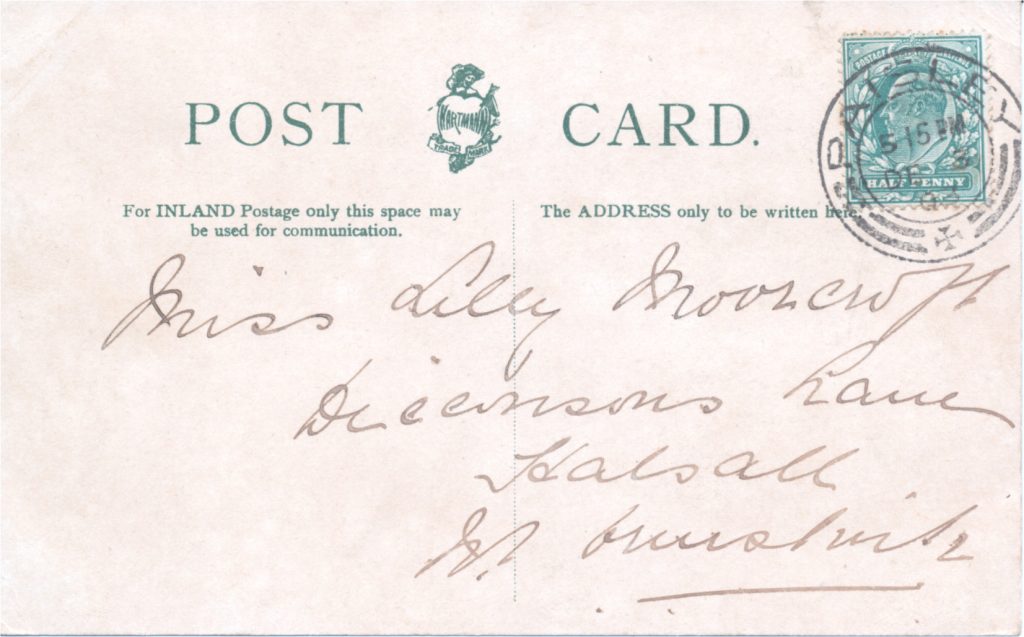 POST CARD.
HARTMANN
TRADE MARK
POSTAGE
HALF PENNY
PAISLEY
5 15 PM
DE 3
For INLAND Postage only this space may
be used for communication.
The ADDRESS only to be written here.
Miss Lilly Moorcroft
Dicconsons Lane
Halsall
Nr Ormskirk